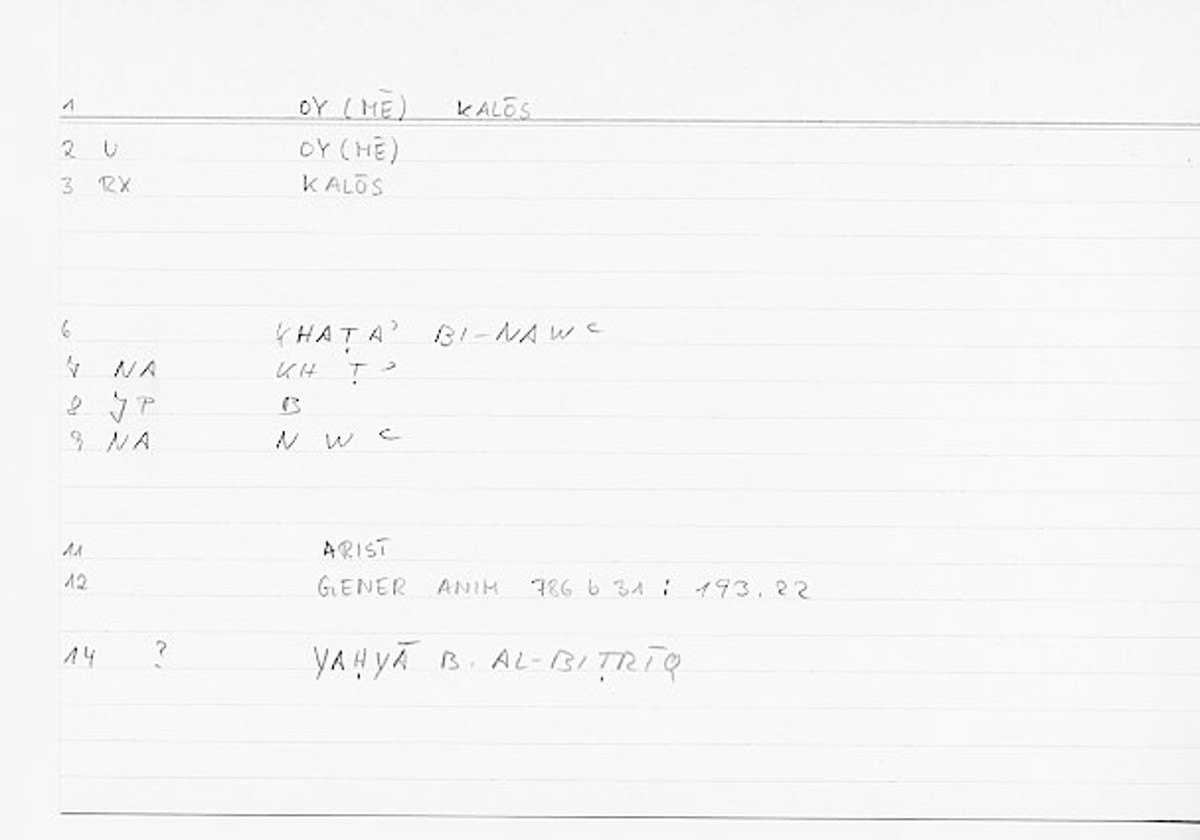 1 OY (MĒ) KALŌS
2 U OY (MĒ)
3 RX KALŌS
6 KHAṬAʾ BI-NAWʿ
7 NA KH Ṭ ʾ
8 JP B
9 NA N W ʿ
11 ARIST
12 GENER ANIM 786 b 31 : 193.22
14 ? YAḤYĀ B. AL-BIṬRĪQ